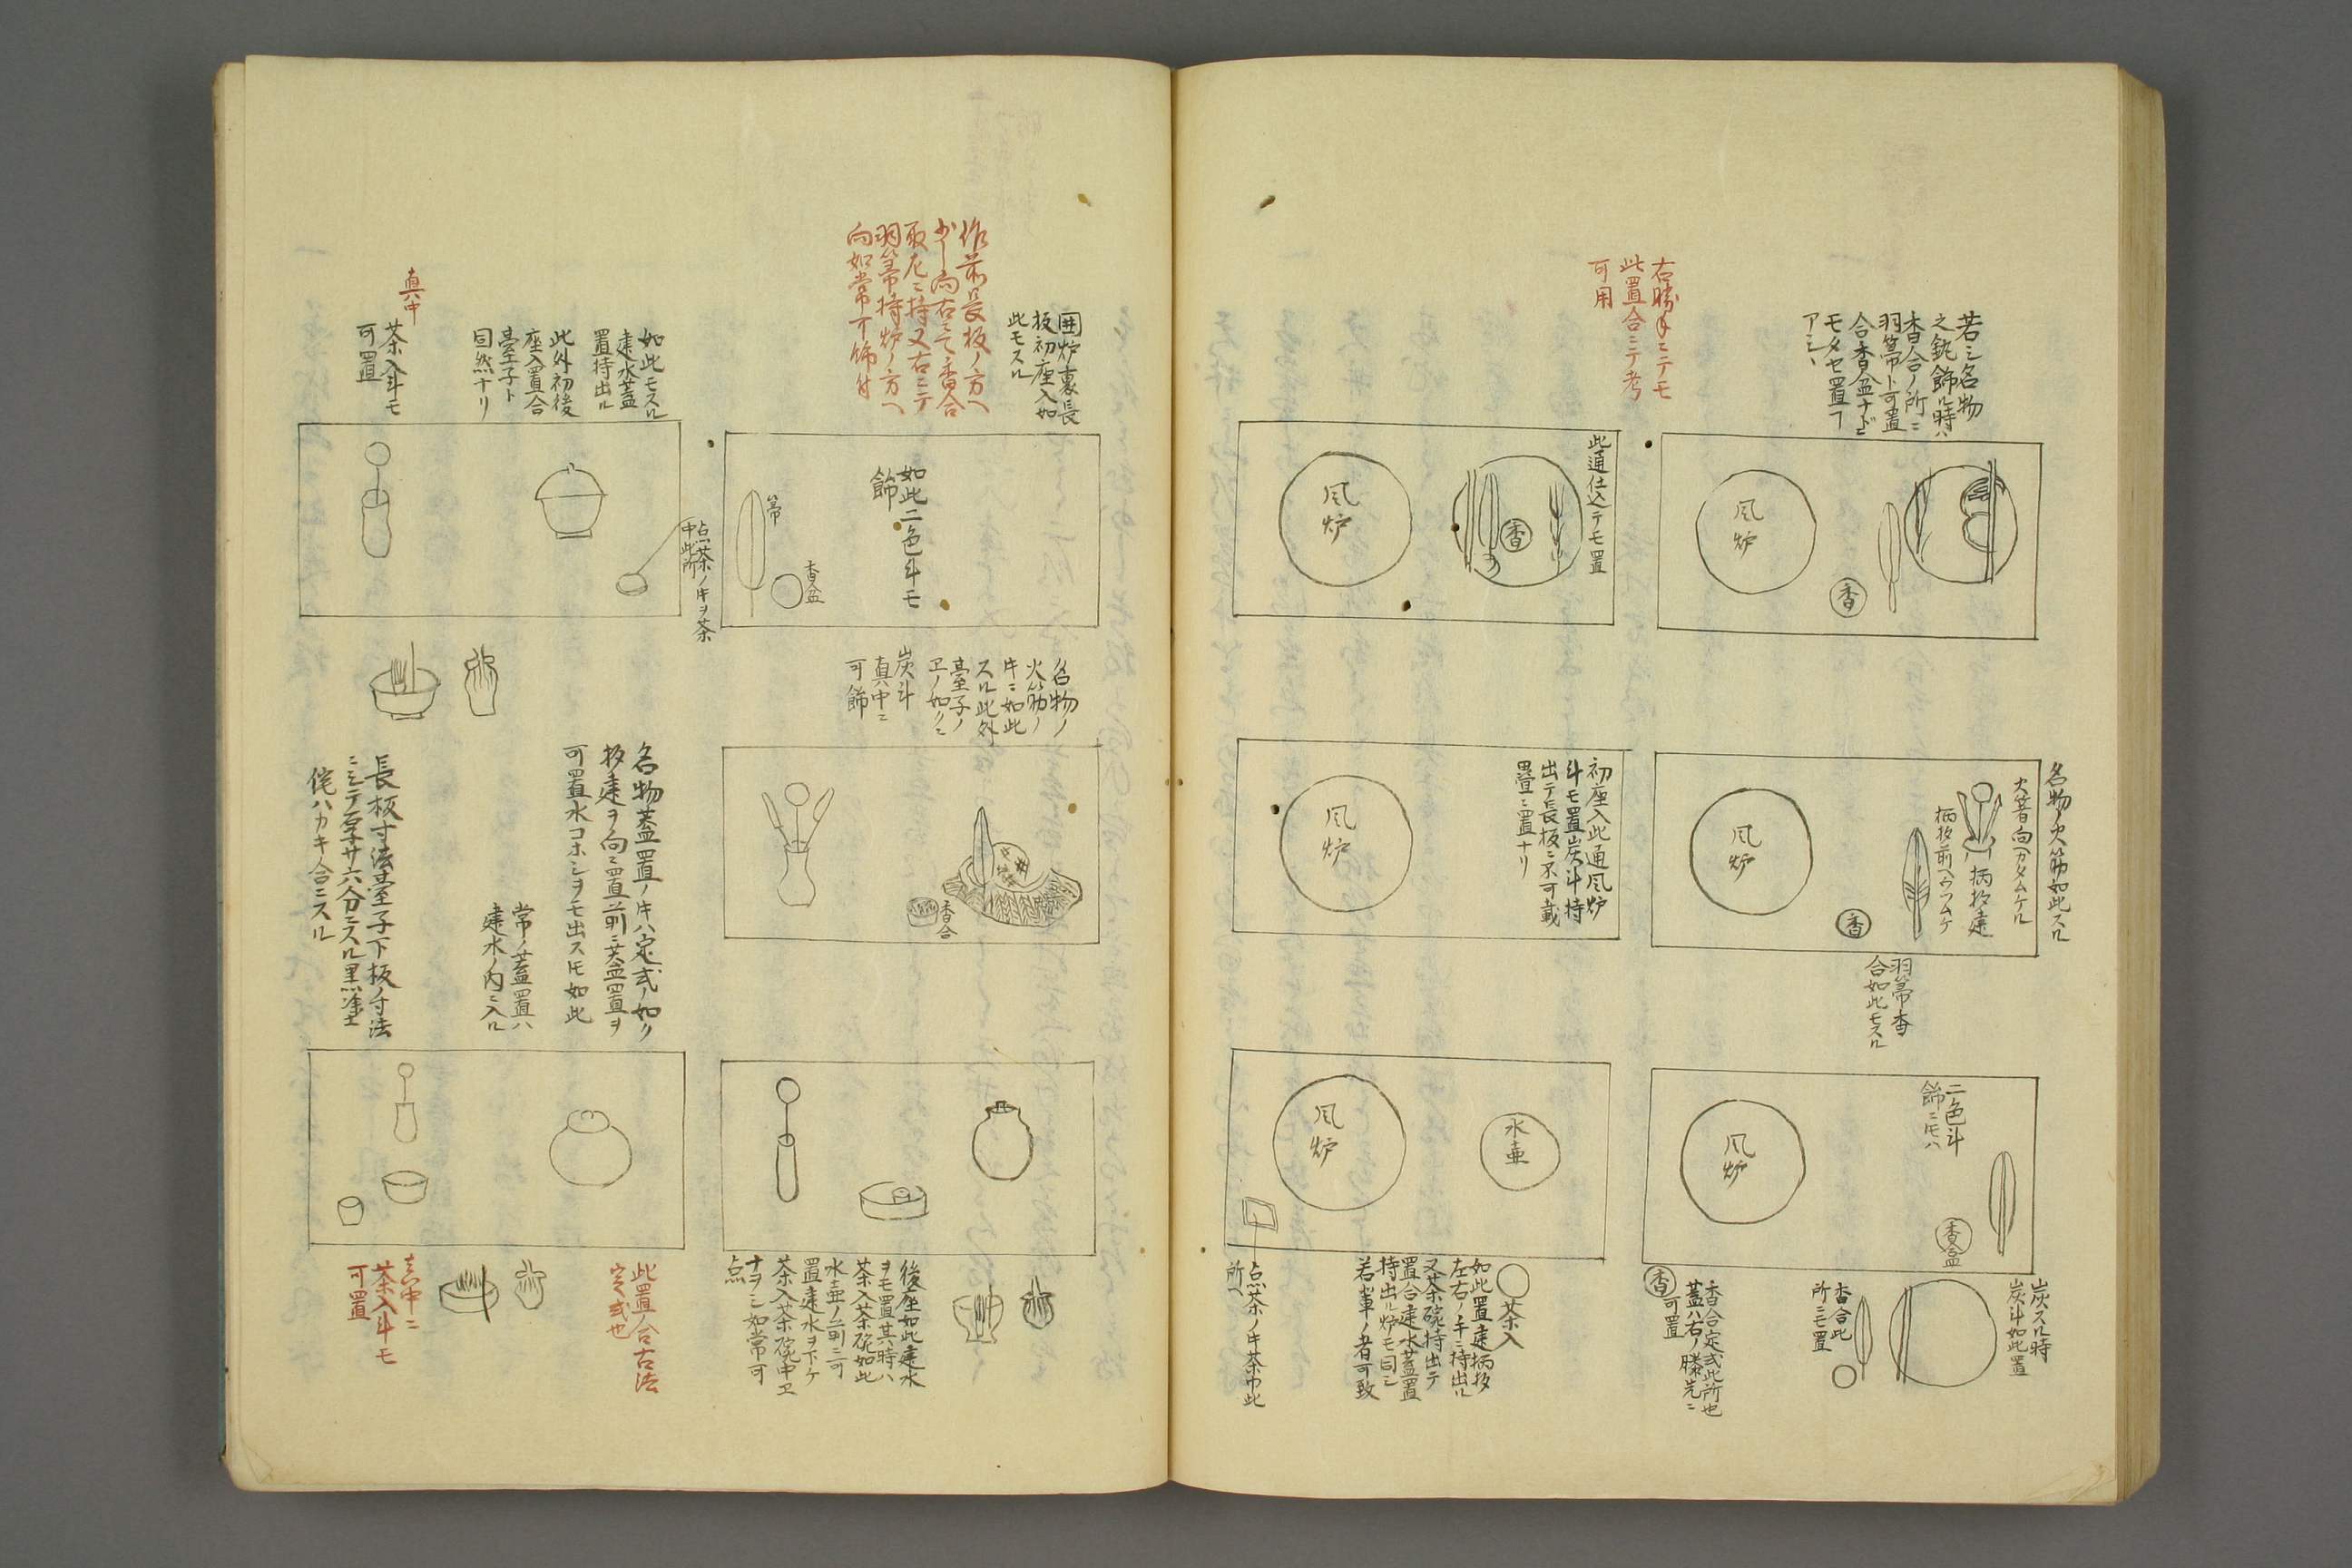 若シ名物
之釻飾ル時ハ
香合ノ所ニ
羽箒ト可置
合香盆ナドニ
モタセ置フ
アシヽ
風炉
香
右勝手ニテモ
此置合ニテ考
可用
此通仕込テモ置
香
風炉
名物ノ火筯如此スル
火箸向ヘカタムケル
柄杓建
柄杓前ヘウツムケ
風炉
香
羽箒香
合如此モスル
初座入此通風炉
斗モ置炭斗持
出テ長板ニ不可載
畳ニ置ナリ
風炉
二色斗
飾ニモハ
香盒
風炉
炭スル時
炭斗如此置
香合此
所ニモ置
香合定式此所也
蓋ハ右ノ膝先ニ
可置
香
水壷
風炉
茶入
如此置建柄杓
左右ノ手ニ持出ル
又茶碗持出テ
置合建水蓋置
持出ル炉モ同シ
若輩ノ者可致
点茶ノ牛茶巾此
所ヘ
囲炉裏長
板初座入如
此モスル
作前長板ノ方ヘ
少シ向右ニて香合
取左ニ持又右ニテ
羽箒持炉ノ方ヘ
向如常可飾付
如此二色斗モ
飾
箒
香盆
如此モスル
建水蓋
置持出ル
此外初後
座入置合
臺子ト
同然ナリ
真中
茶入斗モ
可置
点茶ノ牛ヲ茶
中此所
名物ノ
火筯ノ
牛ニ如此
スル此外
臺子ノ
ヱノ如クニ
炭斗
真中ニ
可飾
香合
名物蓋置ノ牛ハ定式ノ如ク
杓建ヲ向ニ置前ニ蓋置ヲ
可置水コホシヲモ出スモ如此
常ノ蓋置ハ
建水ノ内ニ入ル
長板寸法臺子下板ノ寸法
ニシテ厚サ六分ニスル黒塗
侘ハカキ合ニスル
後座如此建水
ヲモ置其時ハ
茶入茶碗如此
水壷ノ前ニ可
置建水ヲ下ケ
茶入茶碗中ヱ
ナヲシ如常可
点
此置合古法
定式也
真中ニ
茶入斗モ
可置